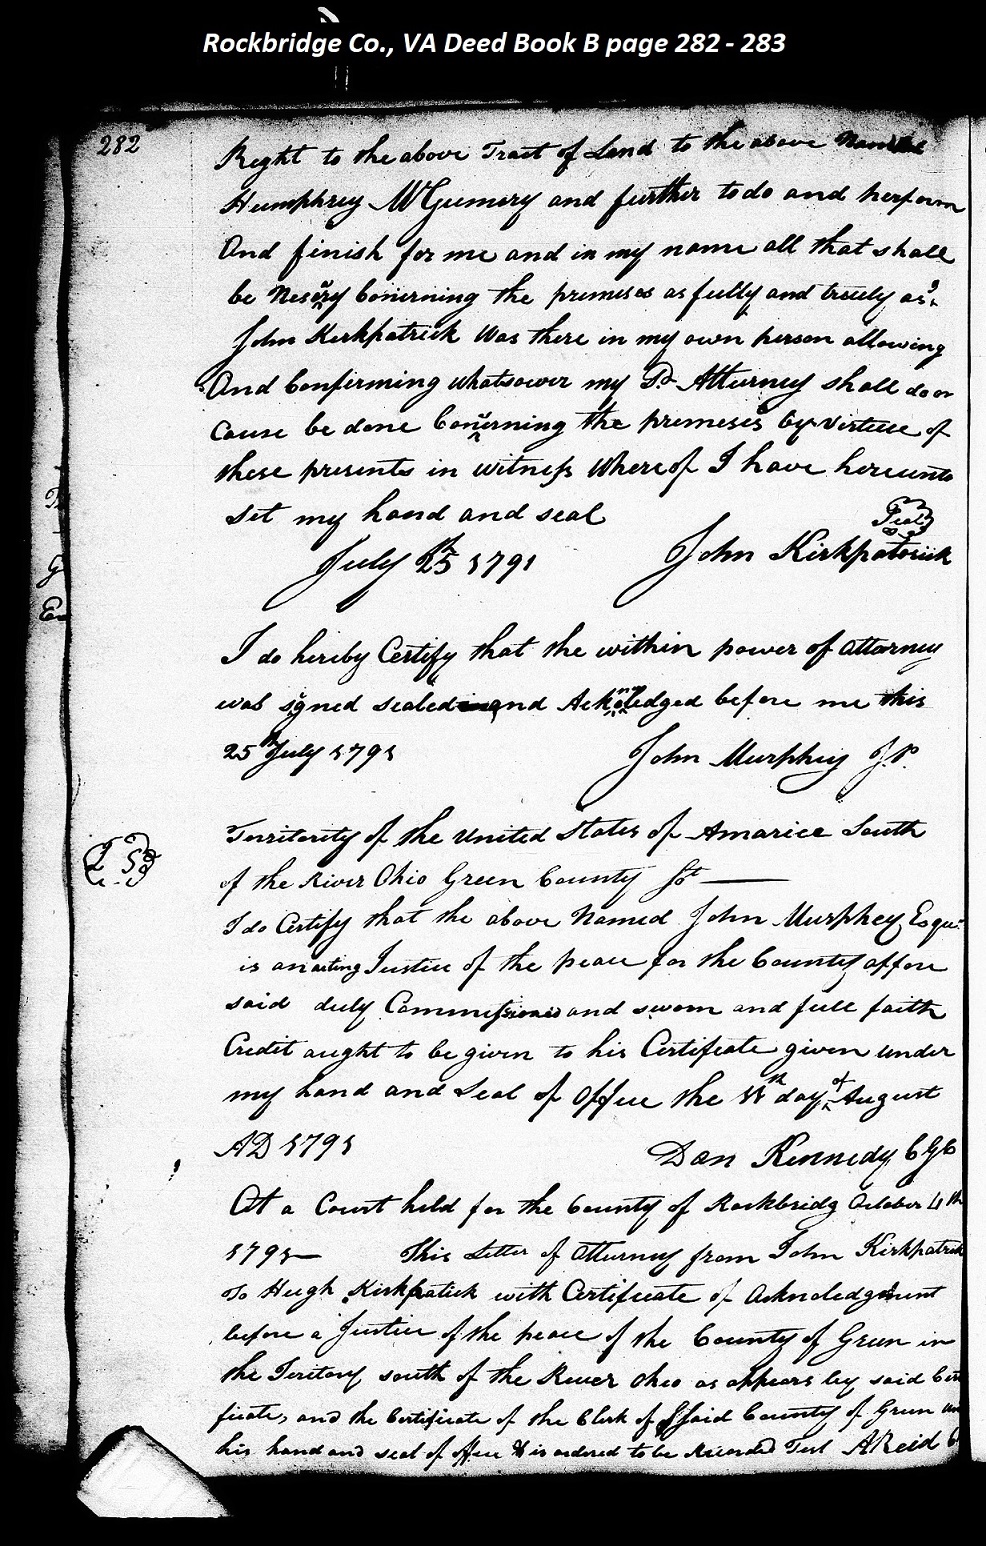 Rockbridge Co., VA Deed Book B page 282 - 283
282
Right to the above Tract of Land to the above Named
Humphrey McGumery and further to do and perform
And finish for me and in my name all that shall
be Nesery Conierning the premises as fully and truely as I
John Kirkpatrick Was there in my own person allowing
And Confirming whatsower my Sd Atturney shall do or
Cause be done Concerning the premeses by virtue of
these presents in witness Whereof I have hereunto
set my hand and seal
Seal
July 25th 1791 John Kirkpatrick
I do hireby Certify that the within power of attorney
was signed sealed and Acknowledged before me this
25th July 1791 John Murphey J.P.
Territority of the United States of Amarica South
of the River Ohio Green County Sct
L S
I do Certify that the above Named John Murphey Esqur
is an acting Justice of the peace for the County affore
said duly Commissioned and sworn and full faith
Credit aught to be given to his Certificate given under
my hand and Seal of Office the 11th day of August
AD 1791 Dan Kennedy C G C
At a Court held for the County of Rockbridg October 4th
1791 This Letter of Atturney from John Kirkpatrick
To Hugh Kirkpatick with Certificate of Acknoledgment
before a Justice of the peace of the County of Green in
the Teritory south of the River Ohio as appears by said Certi
ficate, and the Certificate of the Clerk of Said County of Green un
his hand and seal of office is ordered to be Recorded Test A Reid C